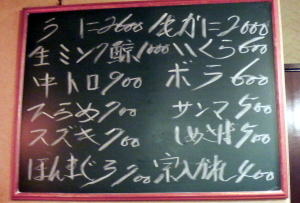 うに2600 生がに2000
生ミンク鯨1000 いくら600
中トロ900 ボラ600
サンマ500
スズキ700 しめさば500
ほんまぐろ 宗八がれい400